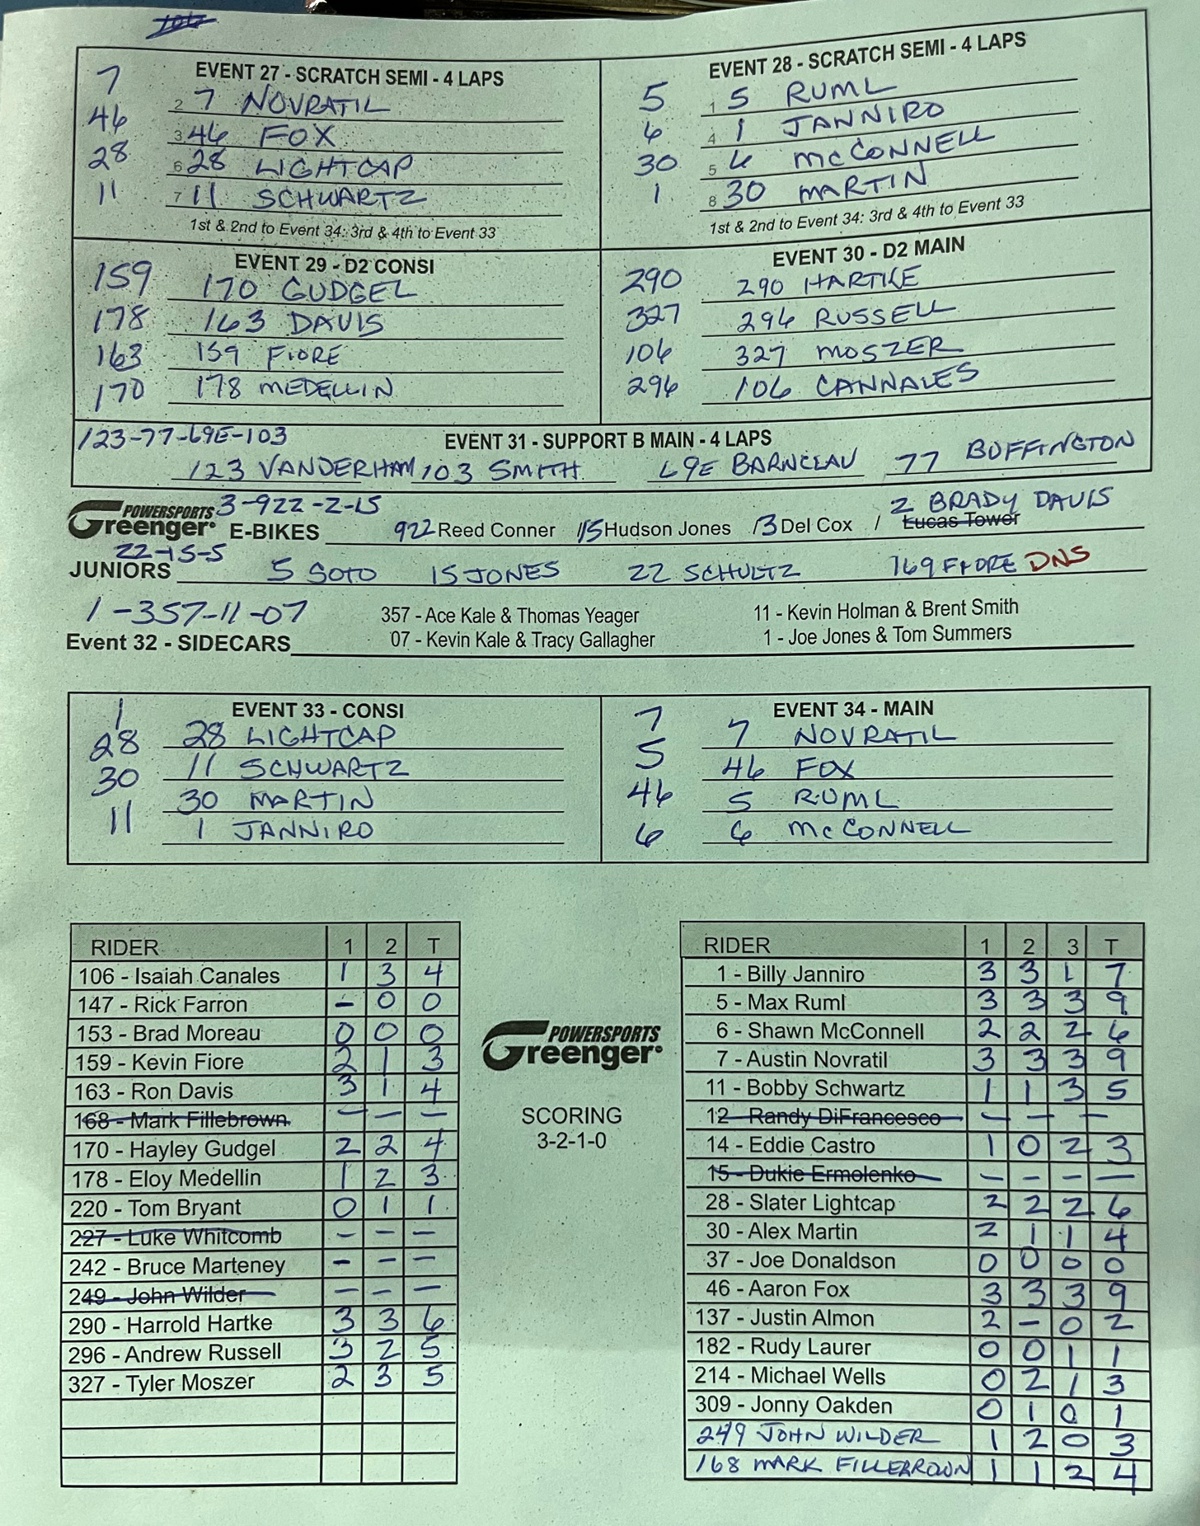 EVENT 27 - SCRATCH SEMI - 4 LAPS
7 2 7 NOVRATIL
46 3 46 FOX
28 6 28 LIGHTCAP
11 7 11 SCHWARTZ
1st & 2nd to Event 34: 3rd & 4th to Event 33
EVENT 28 - SCRATCH SEMI - 4 LAPS
5 1 5 RUML
6 4 1 JANNIRO
30 5 6 McCONNELL
1 8 30 MARTIN
1st & 2nd to Event 34: 3rd & 4th to Event 33
EVENT 29 - D2 CONSI
159 170 GUDGEL
178 163 DAVIS
163 159 FIORE
170 178 MEDELLIN
EVENT 30 - D2 MAIN
290 290 HARTKE
327 296 RUSSELL
106 327 MOSZER
296 106 CANNALES
123-77-69E-103 EVENT 31 - SUPPORT B MAIN - 4 LAPS
123 VANDERHAM 103 SMITH 69E BARNCLAU 77 BUFFINGTON
3-922-2-15 2 BRADY DAVIS
POWERSPORTS Greenger E-BIKES 922 Reed Conner 15 Hudson Jones / 3 Del Cox / Lucas Tower
22-15-5
JUNIORS 5 SOTO 15 JONES 22 SCHULTZ 769 FIORE DNS
1-357-11-07 357 - Ace Kale & Thomas Yeager 11 - Kevin Holman & Brent Smith
Event 32 - SIDECARS 07 - Kevin Kale & Tracy Gallagher 1 - Joe Jones & Tom Summers
EVENT 33 - CONSI
1 28 LIGHTCAP
28 11 SCHWARTZ
30 30 MARTIN
11 1 JANNIRO
EVENT 34 - MAIN
7 7 NOVRATIL
5 46 FOX
46 5 RUML
6 6 McCONNELL
RIDER 1 2 T
106 - Isaiah Canales 1 3 4
147 - Rick Farron - 0 0
153 - Brad Moreau 0 0 0
159 - Kevin Fiore 2 1 3
163 - Ron Davis 3 1 4
168 - Mark Fillebrown - - -
170 - Hayley Gudgel 2 2 4
178 - Eloy Medellin 1 2 3
220 - Tom Bryant 0 1 1
227 - Luke Whitcomb - - -
242 - Bruce Marteney - - -
249 - John Wilder - - -
290 - Harrold Hartke 3 3 6
296 - Andrew Russell 3 2 5
327 - Tyler Moszer 2 3 5
POWERSPORTS
Greenger
SCORING
3-2-1-0
RIDER 1 2 3 T
1 - Billy Janniro 3 3 1 7
5 - Max Ruml 3 3 3 9
6 - Shawn McConnell 2 2 2 6
7 - Austin Novratil 3 3 3 9
11 - Bobby Schwartz 1 1 3 5
12 - Randy DiFrancesco - - -
14 - Eddie Castro 1 0 2 3
15 - Dukie Ermolenko - - - -
28 - Slater Lightcap 2 2 2 6
30 - Alex Martin 2 1 1 4
37 - Joe Donaldson 0 0 0 0
46 - Aaron Fox 3 3 3 9
137 - Justin Almon 2 - 0 2
182 - Rudy Laurer 0 0 1 1
214 - Michael Wells 0 2 1 3
309 - Jonny Oakden 0 1 0 1
249 JOHN WILDER 1 2 0 3
168 MARK FILLEBROWN 1 1 2 4